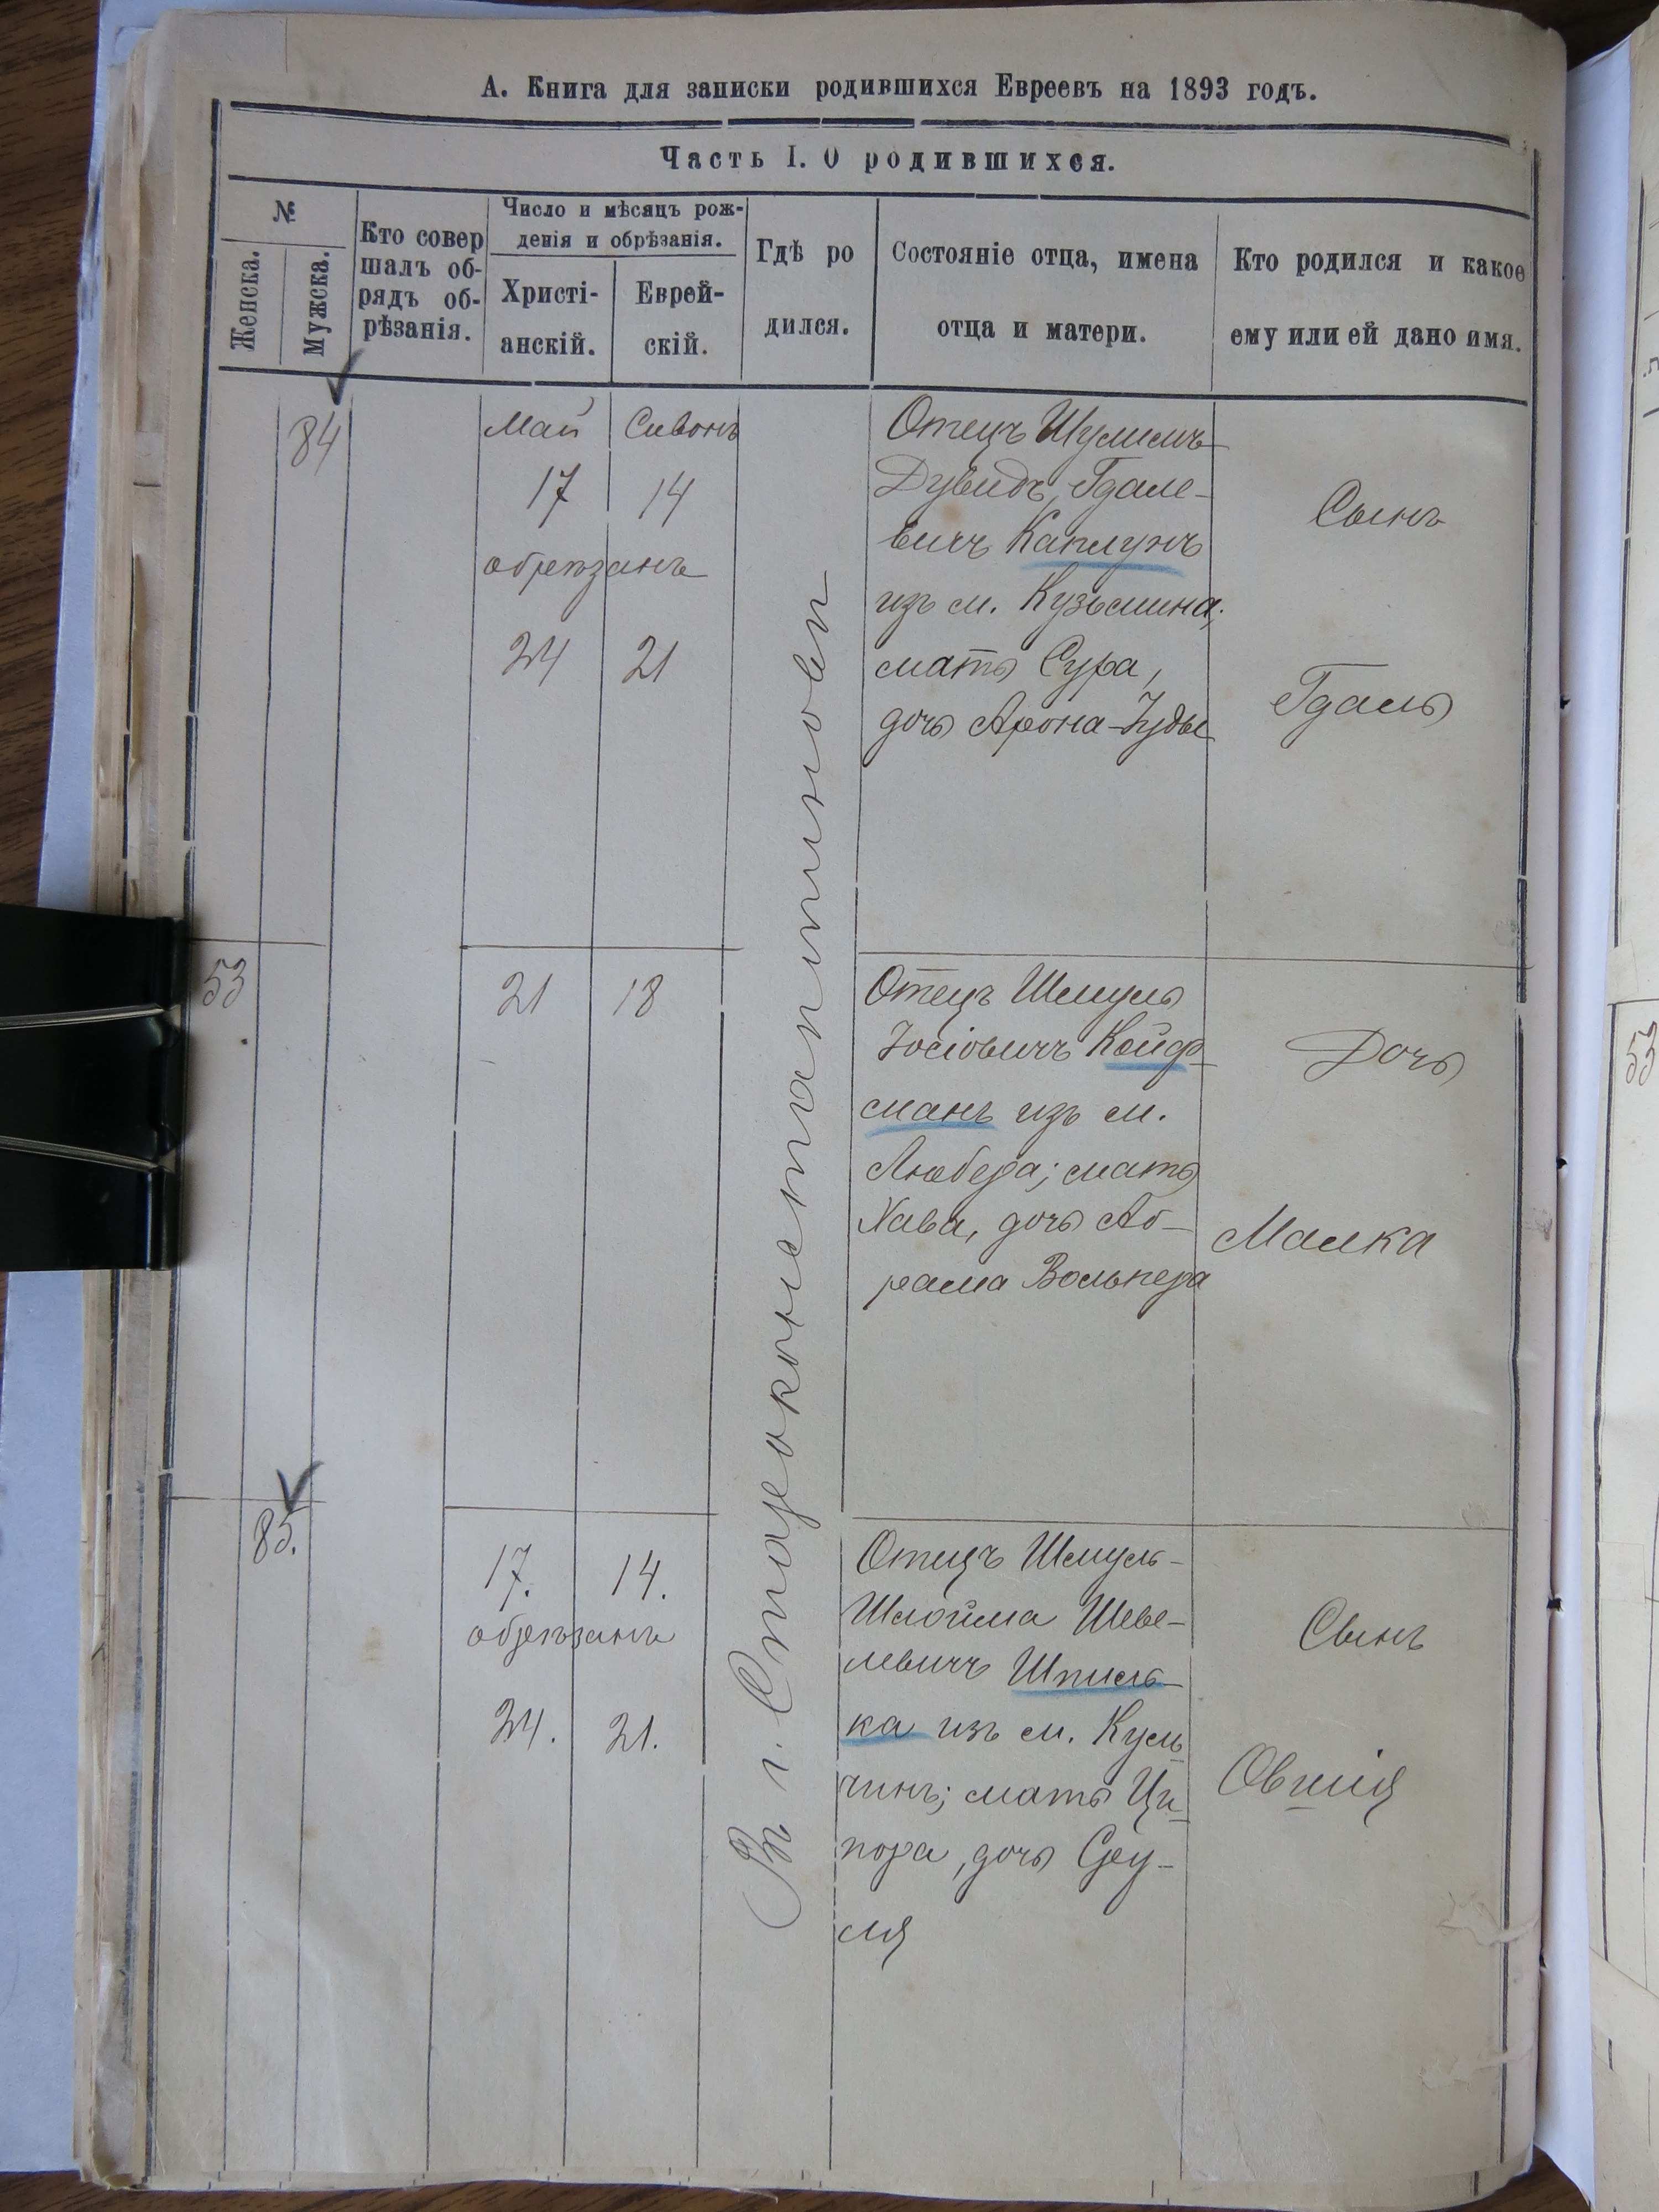 А. Книга для записки родившихся Евреевъ на 1893 годъ.
Часть I. О родившихся.
№
Женска.
Мужска.
Кто совер
шалъ об-
рядъ об-
рѣзанія.
Число и мѣсяцъ рож-
денія и обрѣзанія.
Христі-
анскій.
Еврей-
скій.
Гдѣ ро
дился.
Состояніе отца, имена
отца и матери.
Кто родился и какое
ему или ей дано имя.
84
Май
Сивонъ
17
14
обрѣзанъ
24
21
Отецъ Шулимъ-
Дувидъ Гдале-
вичъ Каплунъ
изъ м. Кузьмина;
мать Сура,
дочь Арона-Іуды
Сынъ
Гдаль
Въ г. Староконстантиновѣ
53
21
18
Отецъ Шмуль
Іосіовичъ Койф-
манъ изъ м.
Любера; мать
Хава, дочь Аб-
рама Вольпера
Дочь
Малка
85.
17.
14.
обрѣзанъ
24.
21.
Отецъ Шмуль-
Шлойма Шеве-
левичъ Шпиль-
ка изъ м. Куль
чинъ; мать Ци-
пора, дочь Сру-
ля
Сынъ
Овшія
53